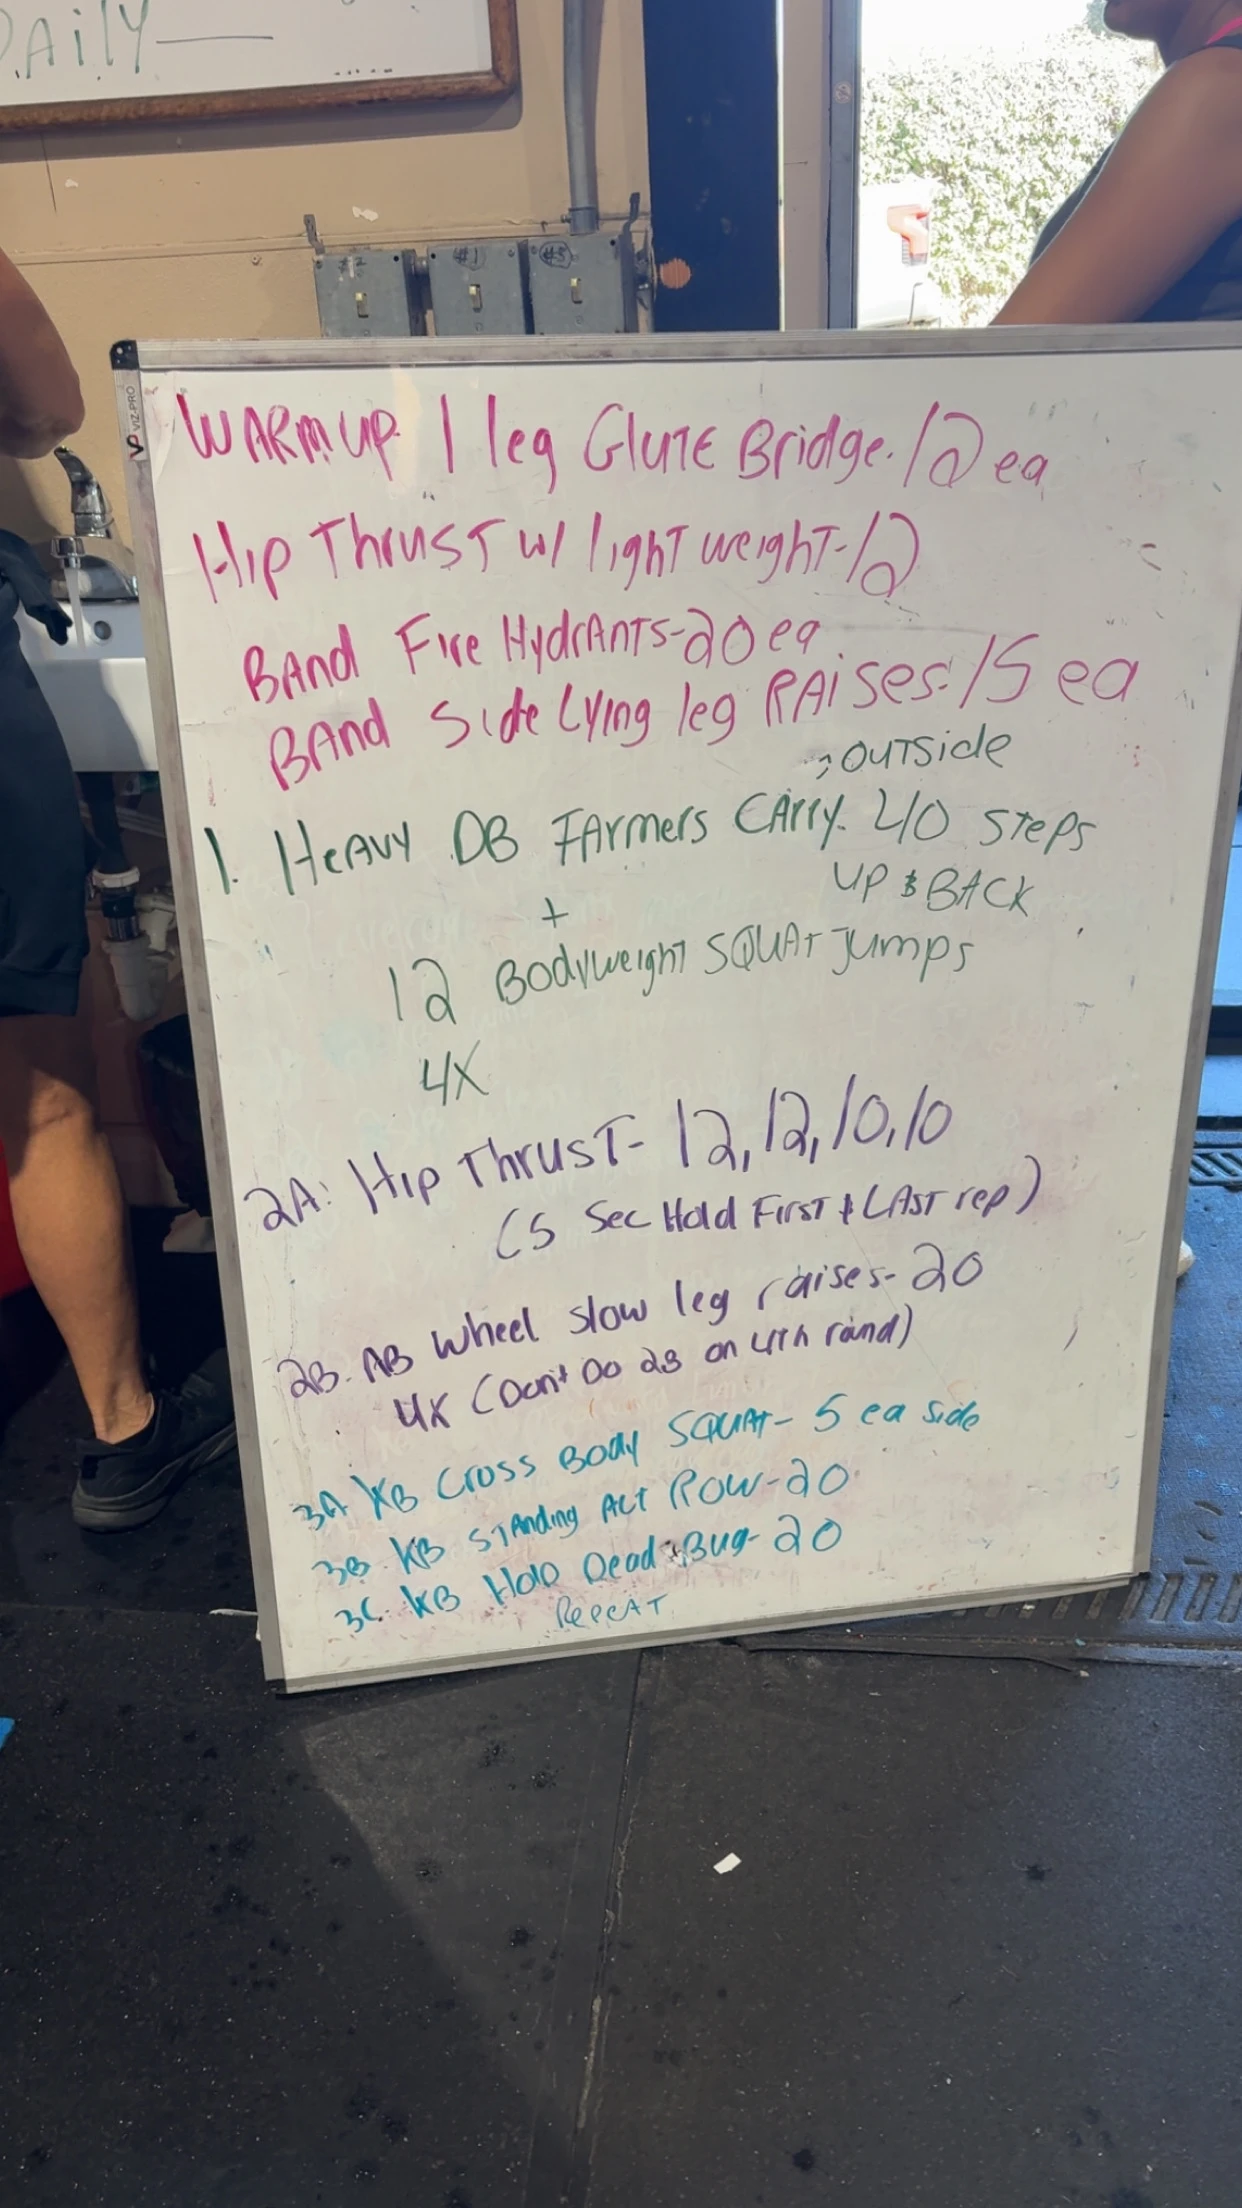 DAily
#1
#3
VIZ-PRO
WARMUP. 1 leg GluTE Bridge. 12 ea
Hip ThrusT w/ lighT weighT-12
BAnd Fire HydrAnTs-20 ea
BAnd Side Lying leg RAises. 15 ea
OUTSide
1. HeAVY DB FArmers CArry. 40 STeps
UP & BACK
+
12 BodyweighT SQUAT Jumps
4X
2A: Hip ThrusT- 12, 12, 10, 10
(5 Sec Hold FirsT & LAsT rep)
2B. AB Wheel slow leg raises- 20
4X (Don't Do 2B on 4Th round)
3A KB Cross Body SQUAT- 5 ea side
3B KB STAnding ALT ROW-20
3C. KB Hold Dead Bug- 20
RepeAT